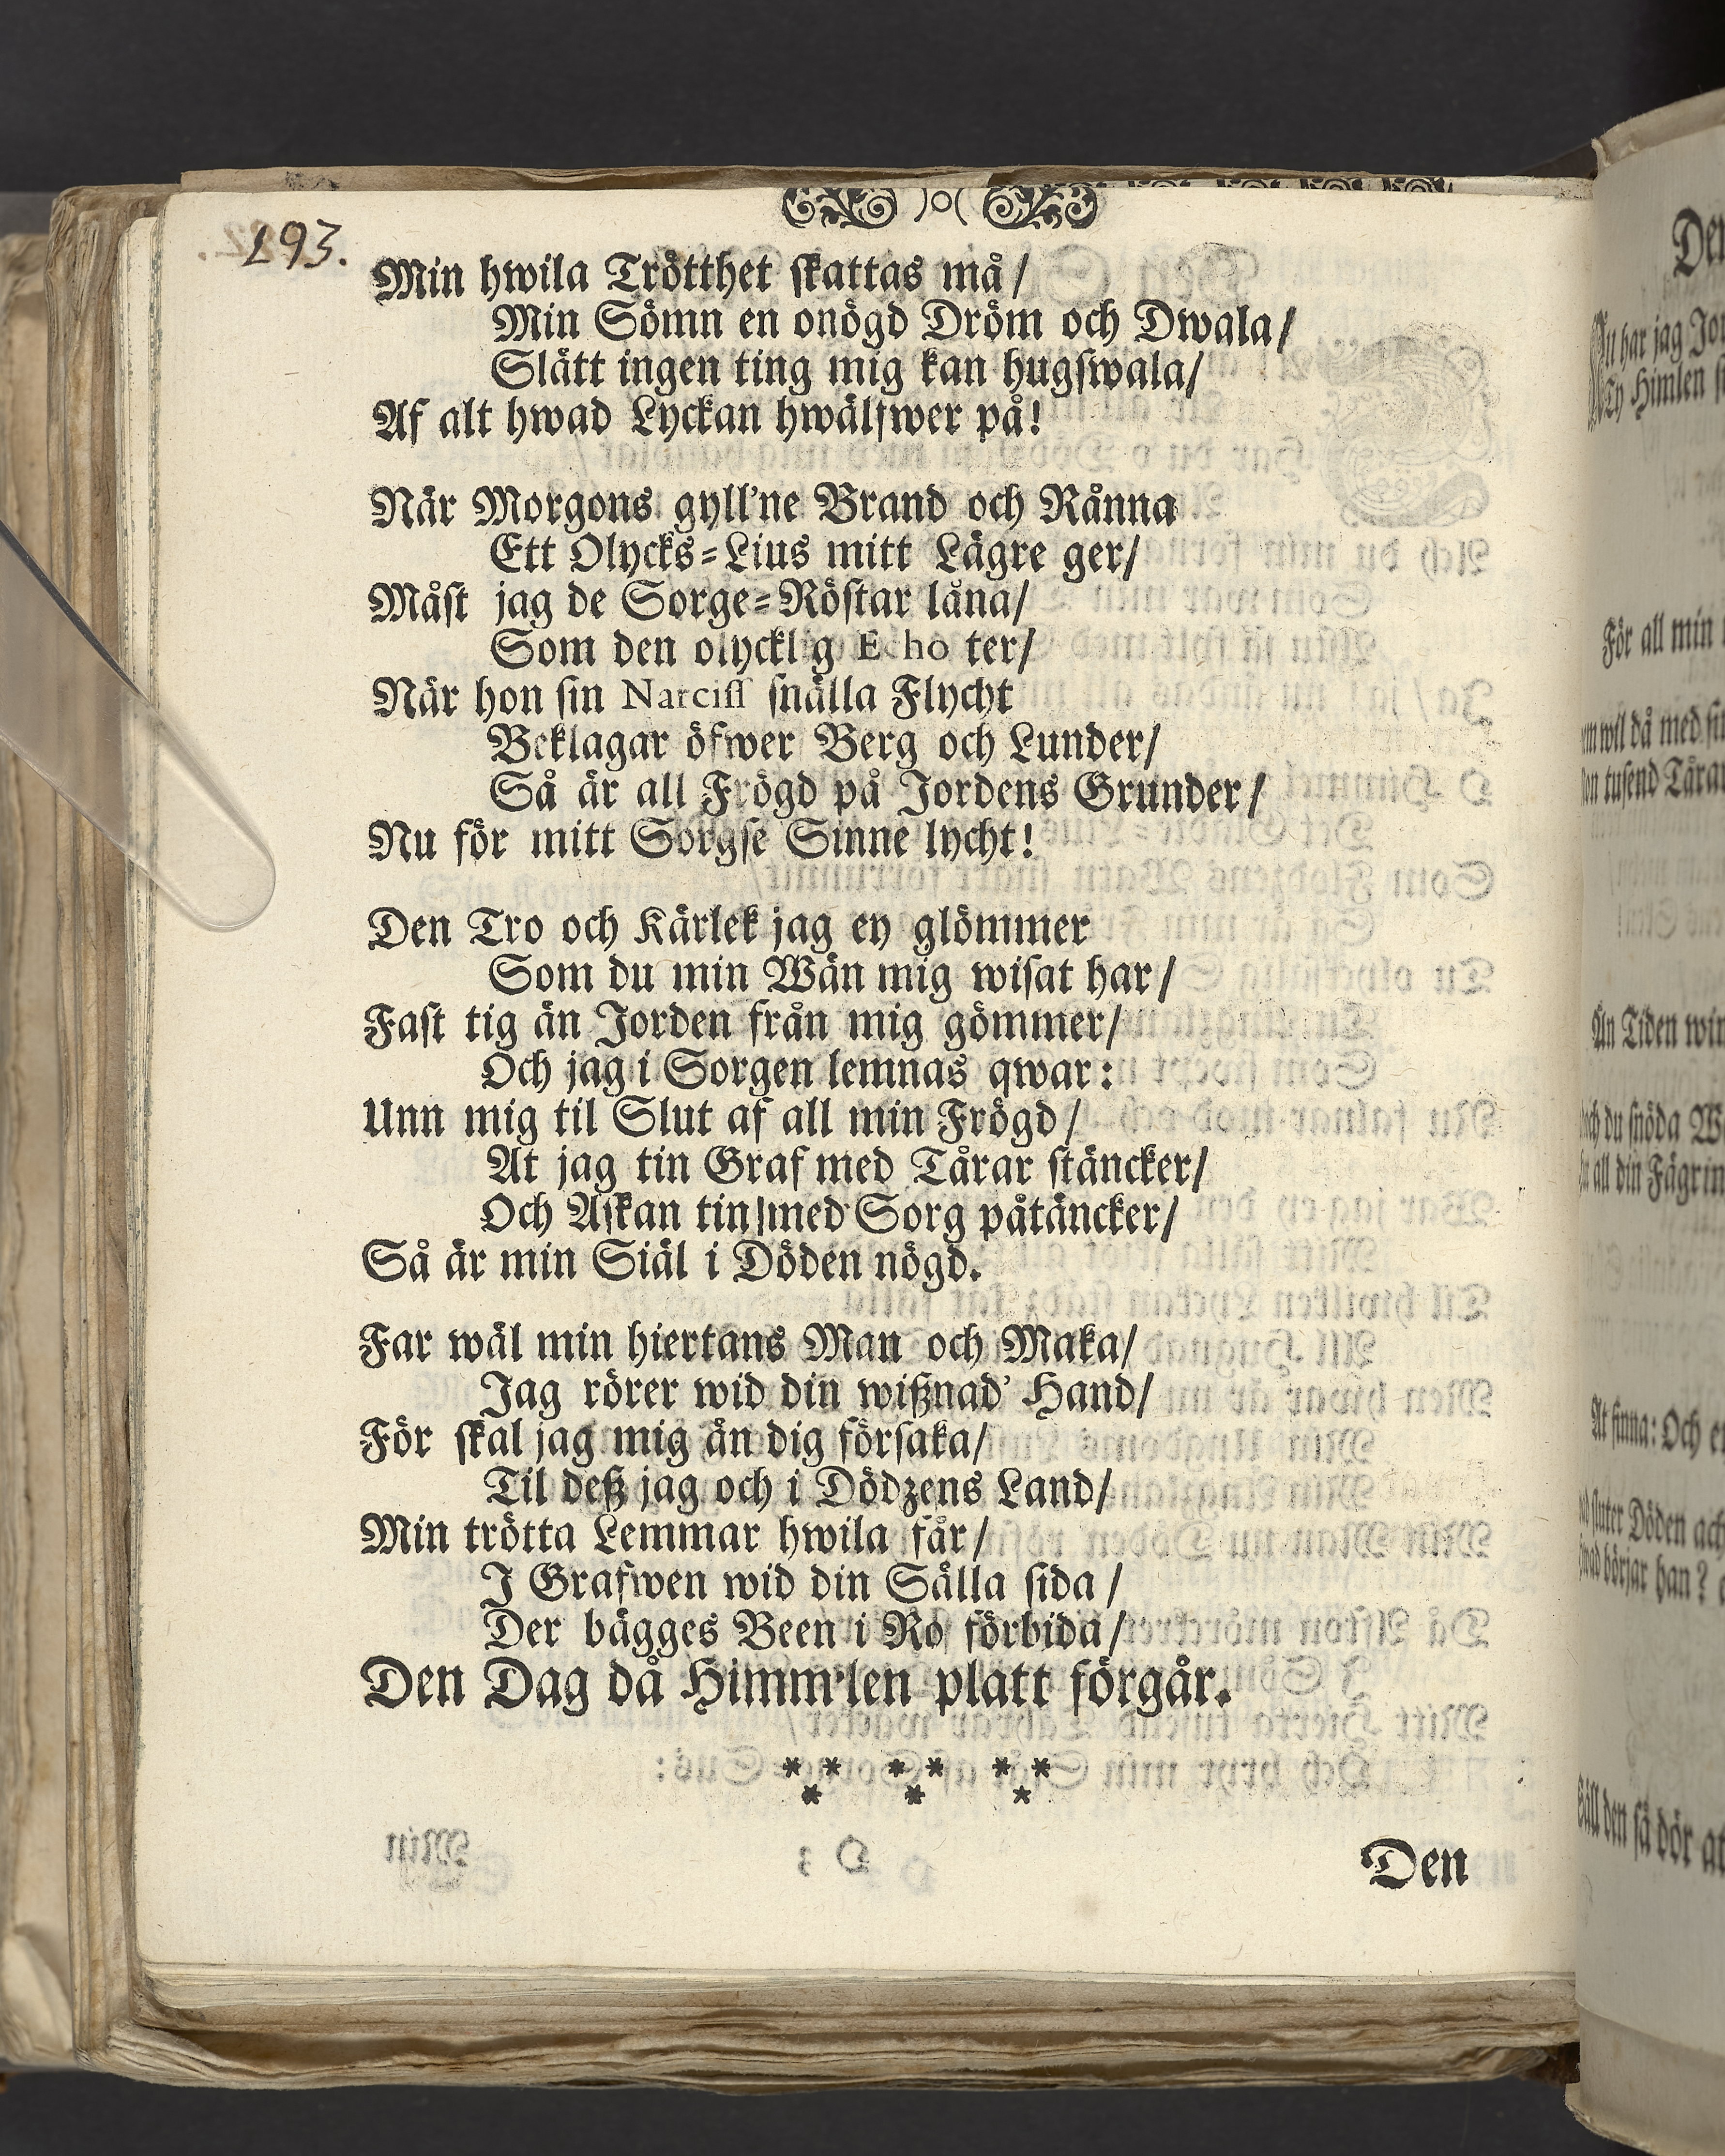 193.
)o(
Min hwila Trötthet skattas må/
Min Sömn en onögd Dröm och Dwala/
Slätt ingen ting mig kan hugswala/
Af alt hwad Lyckan hwälfwer på!
När Morgons gyll'ne Brand och Rånna
Ett Olycks-Lius mitt Lägre ger/
Måst jag de Sorge-Röstar låna/
Som den olycklig Echo ter/
När hon sin Narciss snälla Flycht
Beklagar öfwer Berg och Lunder/
Så är all Frögd på Jordens Grunder/
Nu för mitt Sorgse Sinne lycht!
Den Tro och Kärlek jag ey glömmer
Som du min Wän mig wisat har/
Fast tig än Jorden från mig gömmer/
Och jag i Sorgen lemnas qwar:
Unn mig til Slut af all min Frögd/
At jag tin Graf med Tårar stäncker/
Och Askan tin med Sorg påtäncker/
Så är min Siäl i Döden nögd.
Far wäl min hiertans Man och Maka/
Jag rörer wid din wißnad' Hand/
För skal jag mig än dig försaka/
Til deß jag och i Dödzens Land/
Min trötta Lemmar hwila får/
I Grafwen wid din Sälla sida/
Der bägges Been i Ro förbida/
Den Dag då Himm'len platt förgår.
* * * * * *
* * *
Den